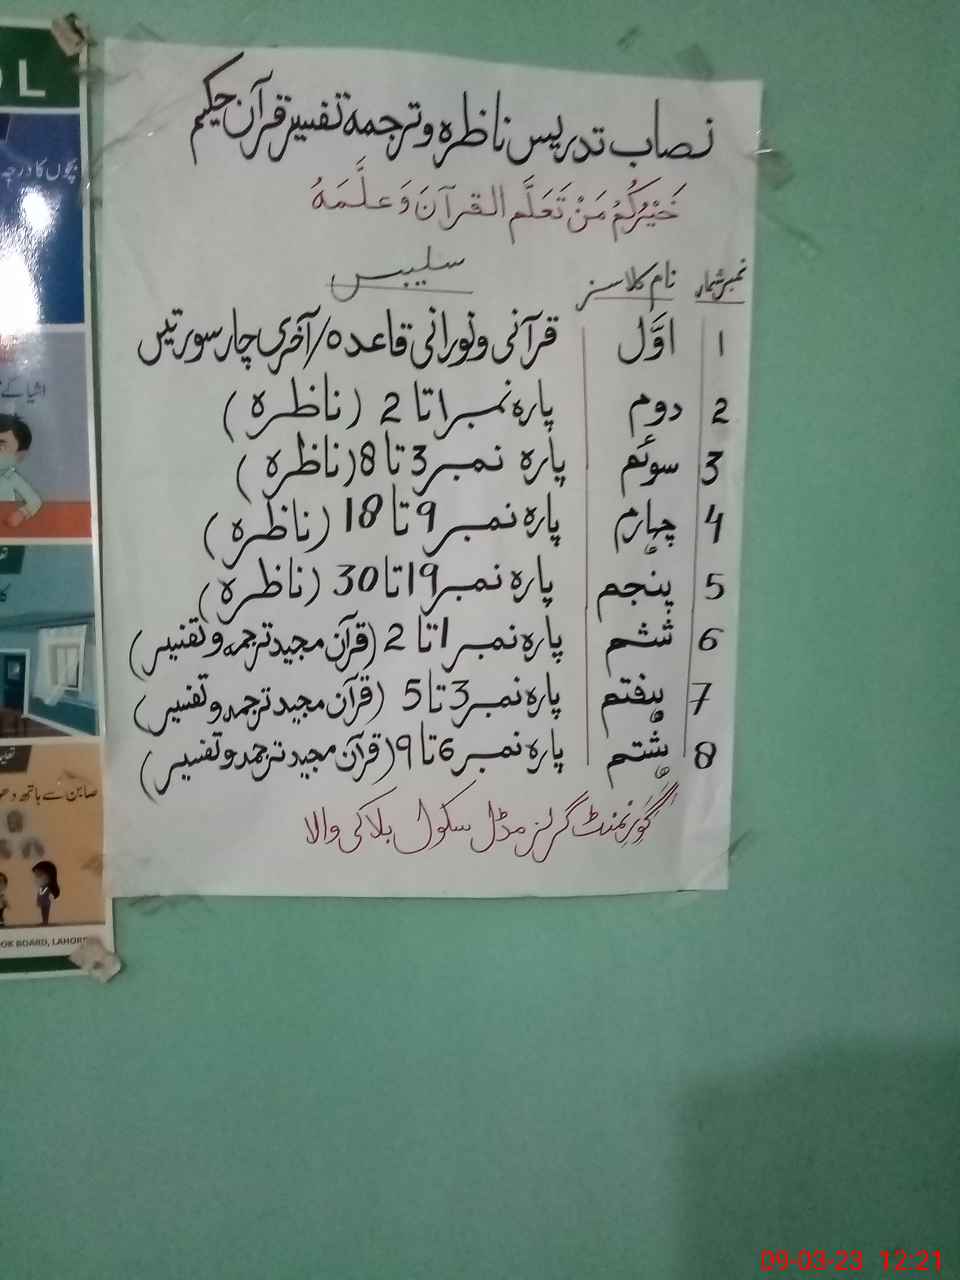 نصاب تدریس ناظرہ و ترجمہ تفسیر قرآن حکیم
خَيْرُكُمْ مَنْ تَعَلَّمَ القرآنَ وَعلَّمَهُ
نمبر شمار نام کلاسز سلیبس
1 اوَّل قرآنی و نورانی قاعدہ/آخری چار سورتیں
2 دوم پارہ نمبر 1 تا 2 (ناظرہ)
3 سوئم پارہ نمبر 3 تا 8 (ناظرہ)
4 چہارم پارہ نمبر 9 تا 18 (ناظرہ)
5 پنجم پارہ نمبر 19 تا 30 (ناظرہ)
6 ششم پارہ نمبر 1 تا 2 (قرآن مجید ترجمہ و تفسیر)
7 ہفتم پارہ نمبر 3 تا 5 (قرآن مجید ترجمہ و تفسیر)
8 ہشتم پارہ نمبر 6 تا 9 (قرآن مجید ترجمہ و تفسیر)
گورنمنٹ گرلز مڈل سکول بلاکی والا
OL
بچوں کا درجہ
اشیا کے
صابن سے ہاتھ دھو
OOK BOARD, LAHORE
09-03-23 12:21